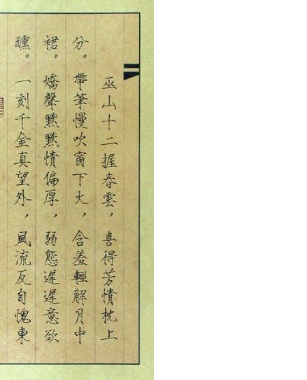 巫山十二握春雲，喜得芳情枕上
分。帶筆慢吹窗下火，含羞輕解月中
裙。嬌聲默默情偏厚，弱態遲遲意欲
醺。一刻千金真望外，風流反自愧東